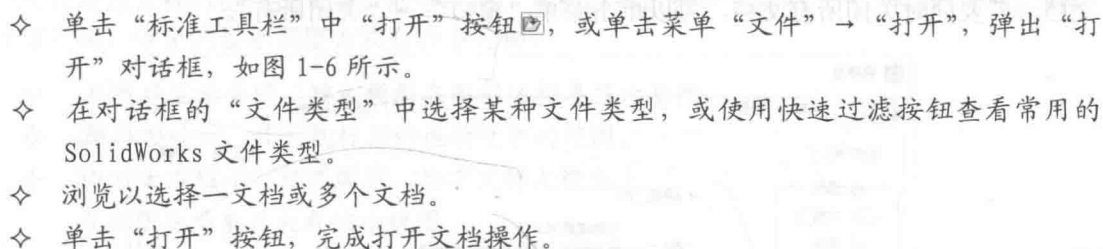 ✧ 单击“标准工具栏”中“打开”按钮，或单击菜单“文件”→“打开”，弹出“打
开”对话框，如图 1-6 所示。
✧ 在对话框的“文件类型”中选择某种文件类型，或使用快速过滤按钮查看常用的
SolidWorks 文件类型。
✧ 浏览以选择一文档或多个文档。
✧ 单击“打开”按钮，完成打开文档操作。